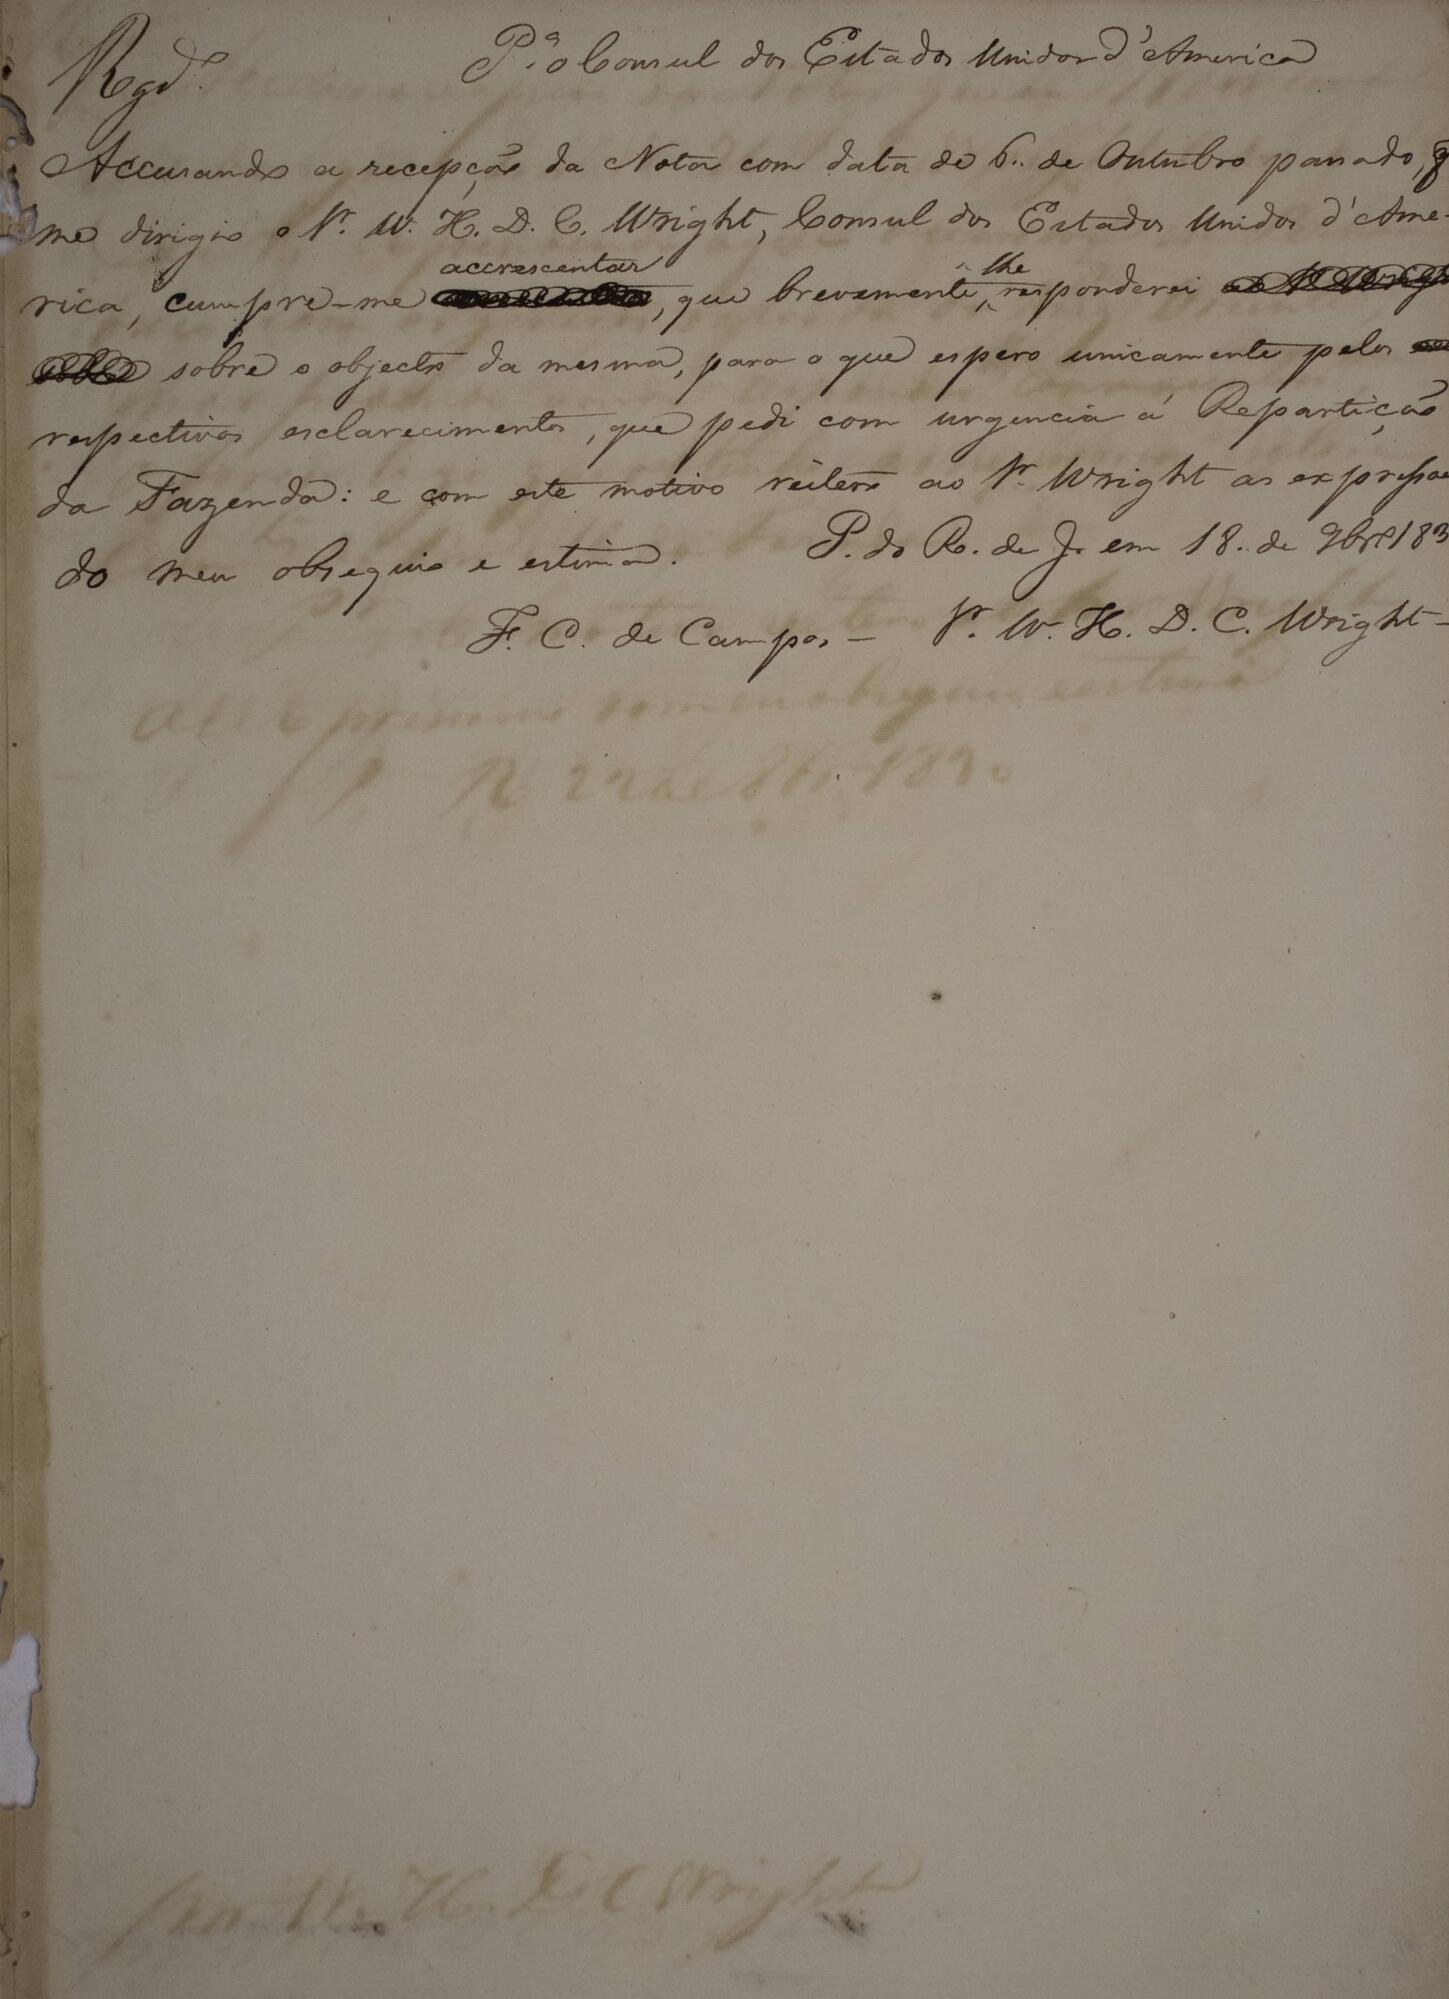 Rgd.º
P.ª o Consul dos Estados Unidos d'America
Accusando a recepção da Nota com data de 6.. de Outubro passado, q
me dirigio o Sr. W. H. D. C. Wright, Consul dos Estados Unidos d'Ame-
accrescentar lhe
rica, cumpre-me , que brevemente, responderei
sobre o objecto da mesma, para o que espero unicamente pelos
respectivos esclarecimentos, que pedi com urgencia á Repartição
da Fazenda: e com este motivo reitero ao Sr. Wright as expressoe
do meu obsequio e estima. P. do R. de J. em 18.. de 9br.º 183
F. C. de Campos — Sr. W. H. D. C. Wright —
obsequio e estima
22 de 8br. 1830
W. H. D. C. Wright